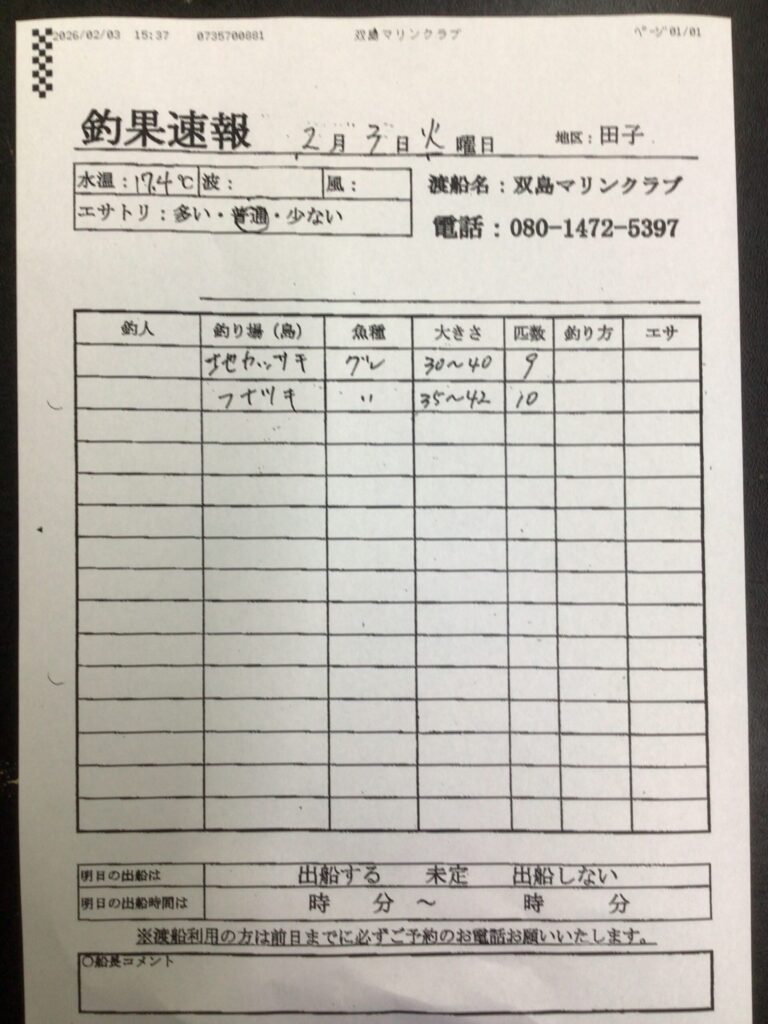 2026/02/03 15:37 0735700881 双島マリンクラブ ページ 01/01
釣果速報 2月3日火曜日 地区：田子
水温：17.4℃ 波： 風： 渡船名：双島マリンクラブ
エサトリ：多い・普通・少ない 電話：080-1472-5397
釣人 釣り場（島） 魚種 大きさ 匹数 釣り方 エサ
地カッツキ グレ 30～40 9
フナツキ 〃 35～42 10
明日の出船は 出船する 未定 出船しない
明日の出船時間は 時 分 ～ 時 分
※渡船利用の方は前日までに必ずご予約のお電話お願いいたします。
○船長コメント